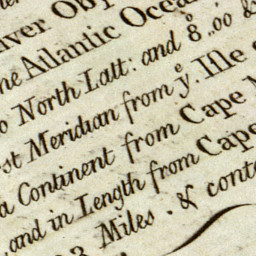 iver Ob
he Atlantic Ocea
o North Latt: and 8°,00 &
st Meridian from yͤ. Isle
a Continent from Cape
and in Length from Cape
3 Miles. & conta